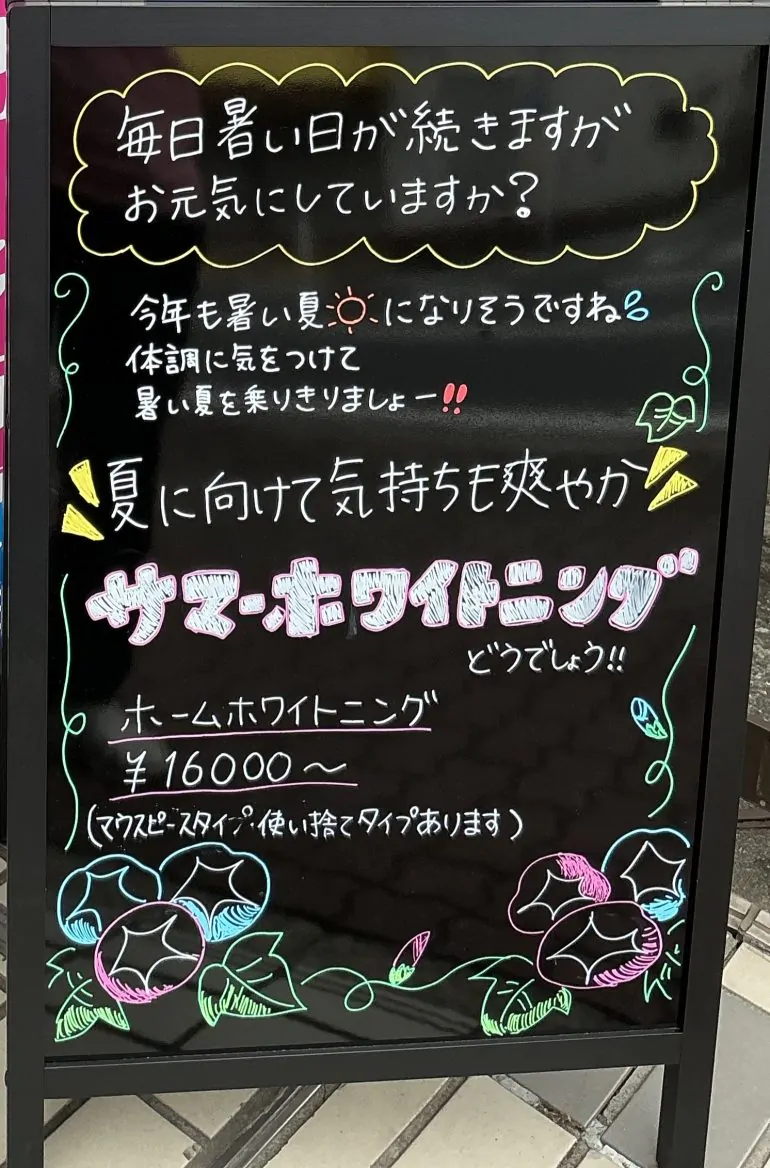 毎日暑い日が続きますが
お元気にしていますか?
今年も暑い夏☀になりそうですね💦
体調に気をつけて
暑い夏を乗りきりましょー‼
夏に向けて気持ちも爽やか
サマーホワイトニング
どうでしょう!!
ホームホワイトニング
¥16000〜
(マウスピースタイプ・使い捨てタイプあります)